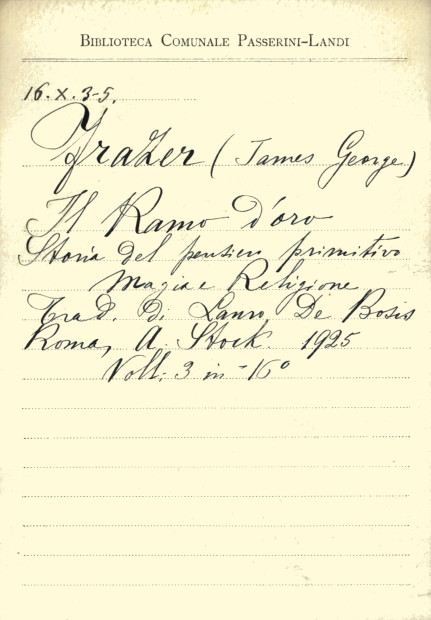 BIBLIOTECA COMUNALE PASSERINI-LANDI
16.X.3-5.
Frazer (James George)
Il Ramo d'oro
Storia del pensiero primitivo
Magia e Religione
Trad. di Lauro De Bosis
Roma, A. Stock. 1925
Voll. 3 in-16°